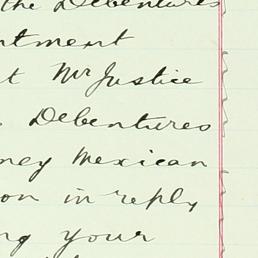 the Debentures
ntment
t Mr Justice
Debentures
ney Mexican
on in reply
ng your